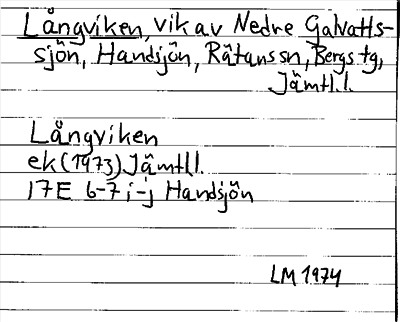 Långviken, vik av Nedre Galvatts-
sjön, Handsjön, Rätans sn, Bergs tg,
Jämtl.l.
Långviken
ek (1973) Jämtl.l.
17E 6-7 i-j Handsjön
LM 1974